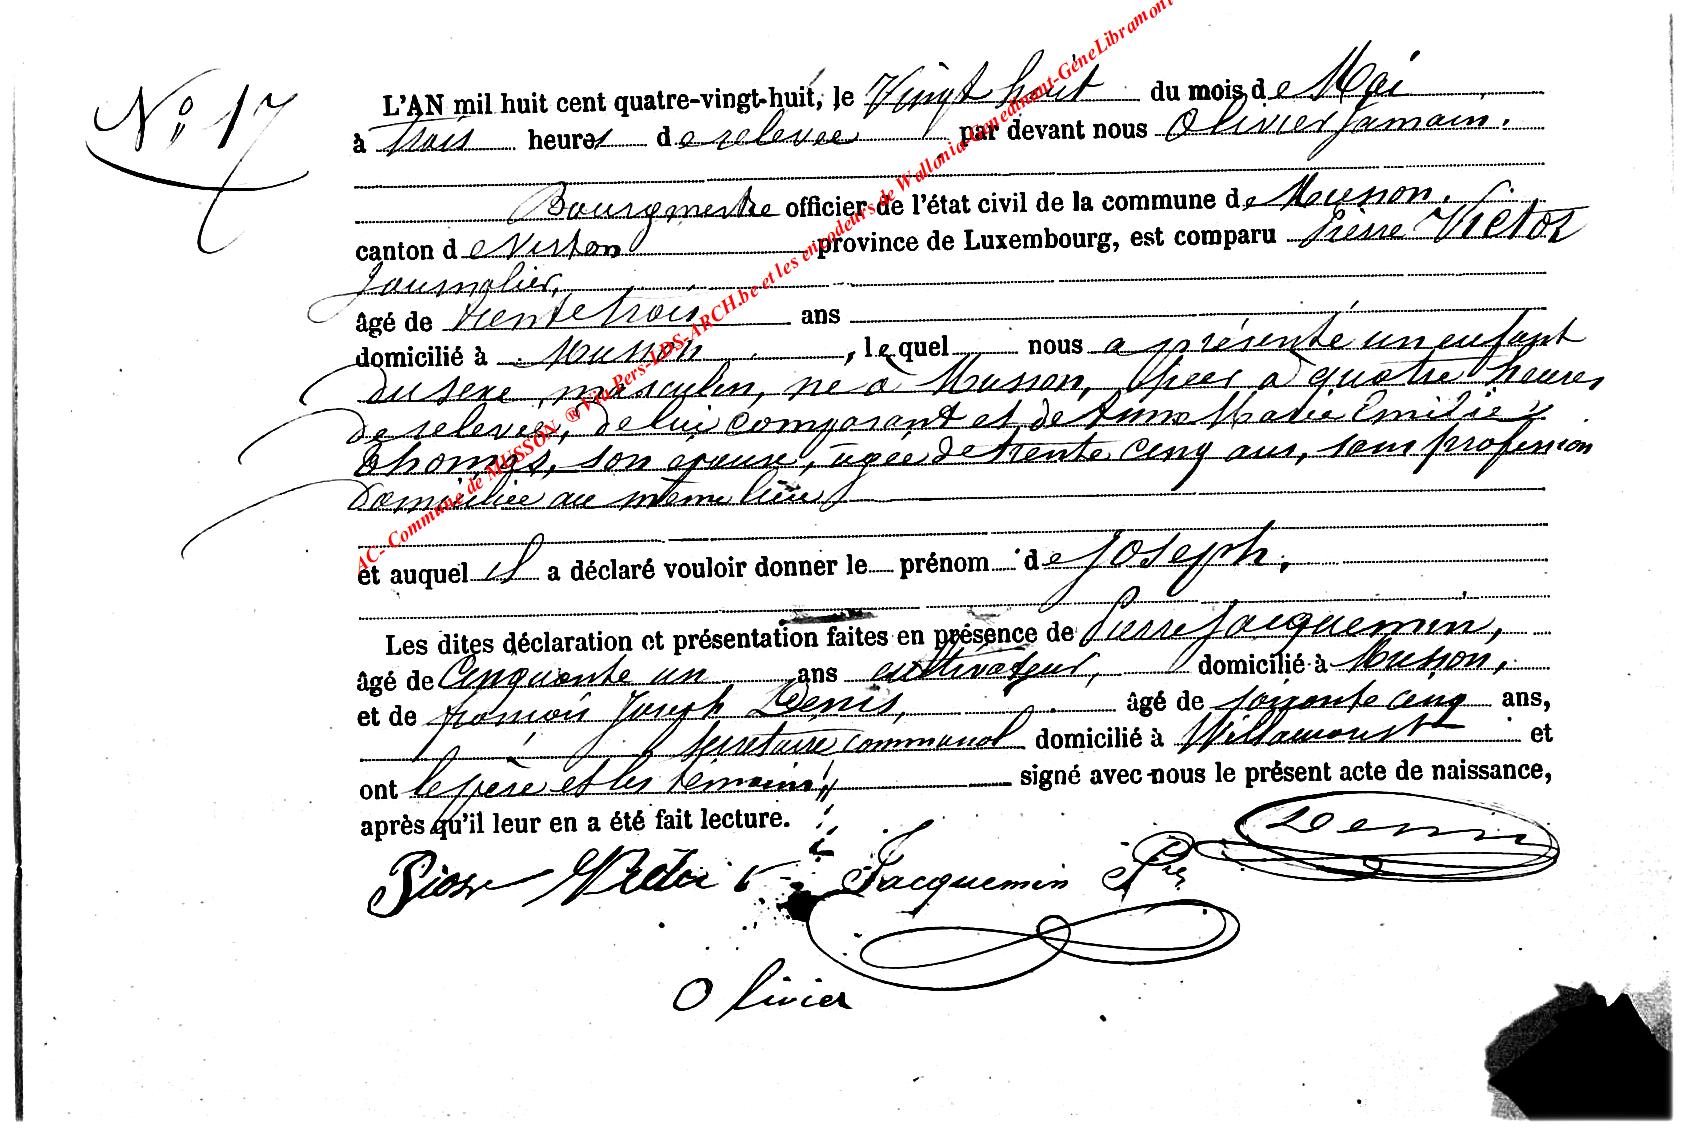 N° 17
L'AN mil huit cent quatre-vingt-huit, le Vingt huit du mois de Mai
à trois heures de relevée par devant nous Olivier Jamain.
Bourgmestre officier de l'état civil de la commune de Musson.
canton de Virton province de Luxembourg, est comparu Pierre Victor
Journalier,
âgé de trente trois ans
domicilié à Musson, lequel nous a présenté un enfant
du sexe masculin, né à Musson, hier à quatre heures
de relevée, de lui comparant et de Anne Marie Emilie
Thomas, son épouse, âgée de trente cinq ans, sans profession
domiciliée au même lieu
et auquel il a déclaré vouloir donner le prénom de Joseph,
Les dites déclaration et présentation faites en présence de Pierre Jacquemin,
âgé de Cinquante un ans cultivateur, domicilié à Musson,
et de françois Joseph Denis, âgé de soixante cinq ans,
secrétaire communal domicilié à Willancourt et
ont le père et les témoins, signé avec nous le présent acte de naissance,
après qu'il leur en a été fait lecture.
Denis
Jacquemin Pre
Olivier
AC- Commune de MUSSON ® Via Pers-LDS-ARCH.be et les encodeurs de Wallonia-Genedinant-GeneLibramont